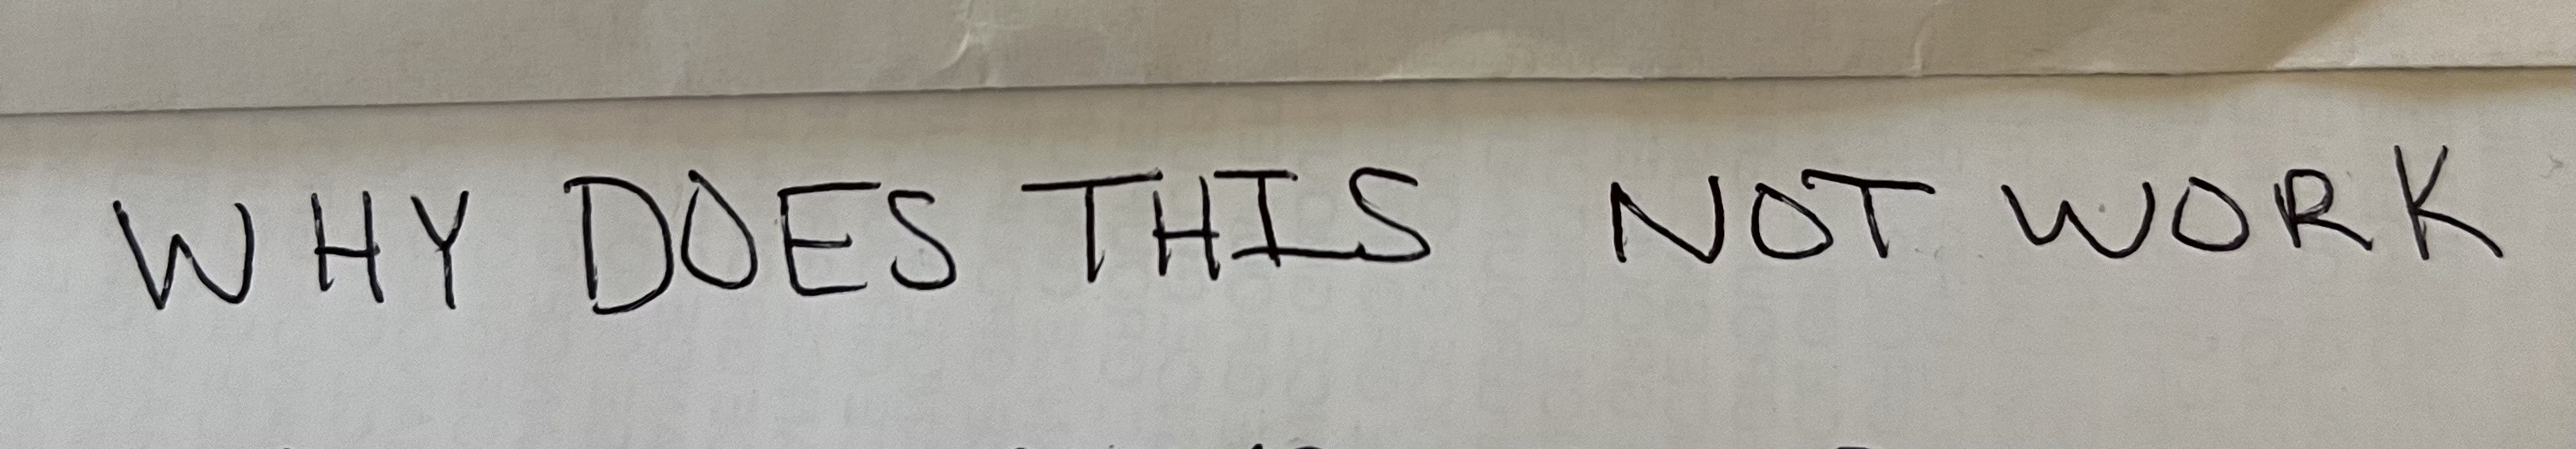 WHY DOES THIS NOT WORK